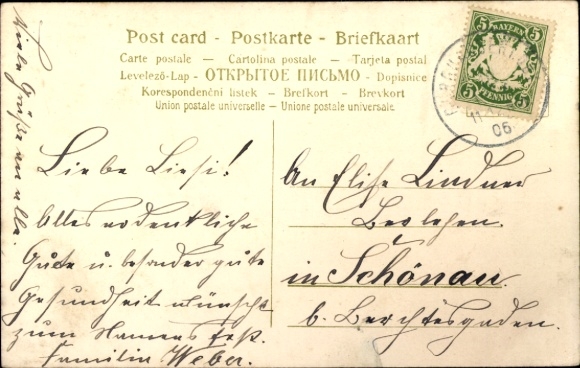 Post card - Postkarte - Briefkaart
Carte postale — Cartolina postale — Tarjeta postal
Levelező-Lap - ОТКРЫТОЕ ПИСЬМО - Dopisnice
Korespondenční lístek — Brefkort — Brevkort
Union postale universelle — Unione postale universale.
5 BAYERN 5
5 PFENNIG 5
11
06
Viele Grüße an alle.
Liebe Liesi!
Alles erdenkliche
Gute u. besonder gute
Gesundheit wünscht
zum Namens Fest.
Familie Weber.
An Elise Lindner
in Schönau.
b. Berchtesgaden.